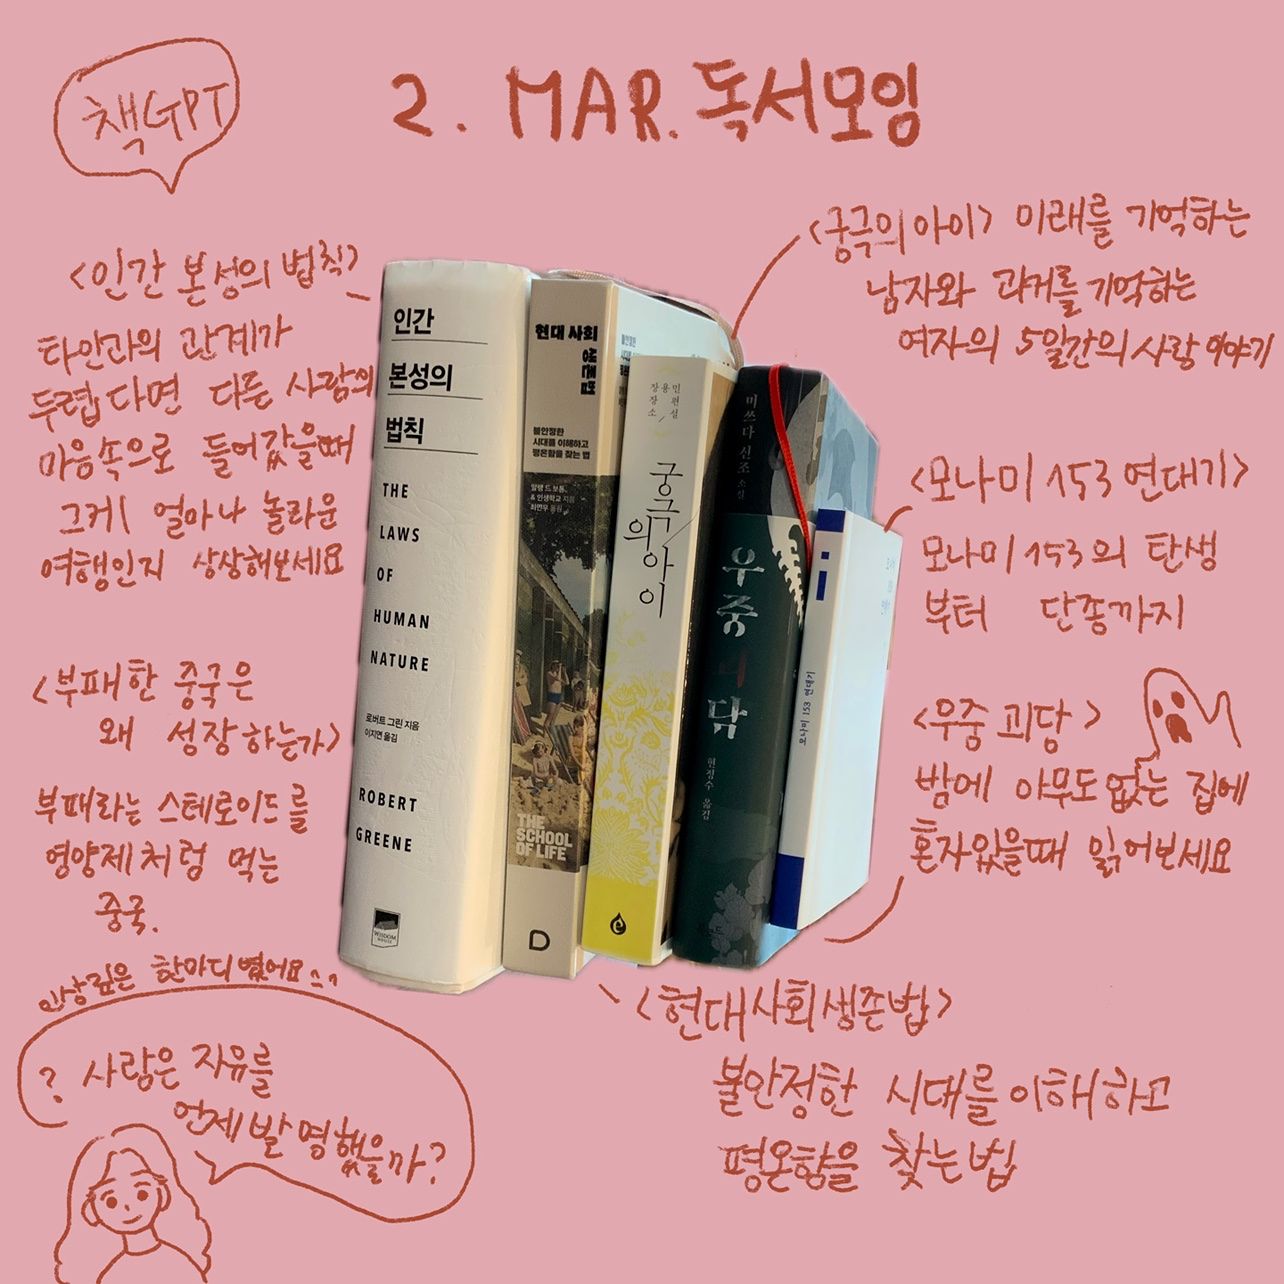 책GPT
2. MAR. 독서모임
<인간 본성의 법칙>
타인과의 관계가
두렵다면 다른 사람의
마음속으로 들어갔을때
그게 얼마나 놀라운
여행인지 상상해보세요
<부패한 중국은
왜 성장하는가>
부패라는 스테로이드를
영양제처럼 먹는
중국.
인상깊은 한마디 였어요
? 사람은 자유를
언제 발명했을까?
인간
본성의
법칙
THE
LAWS
OF
HUMAN
NATURE
로버트 그린 지음
이지연 옮김
ROBERT
GREENE
WISDOM
HOUSE
현대 사회
생존법
불안정한
시대를 이해하고
평온함을 찾는 법
알랭 드 보통
& 인생학교 지음
최민우 옮김
THE
SCHOOL
OF LIFE
D
장용민
장편
소설
궁극
의
아이
e
미쓰다 신조 소설
우중괴담
현정수 옮김
i
모나미 153 연대기
<궁극의 아이> 미래를 기억하는
남자와 과거를 기억하는
여자의 5일간의 사랑 이야기
<모나미 153 연대기>
모나미 153의 탄생
부터 단종까지
<우중괴담>
밤에 아무도 없는 집에
혼자있을때 읽어보세요
<현대사회생존법>
불안정한 시대를 이해하고
평온함을 찾는법